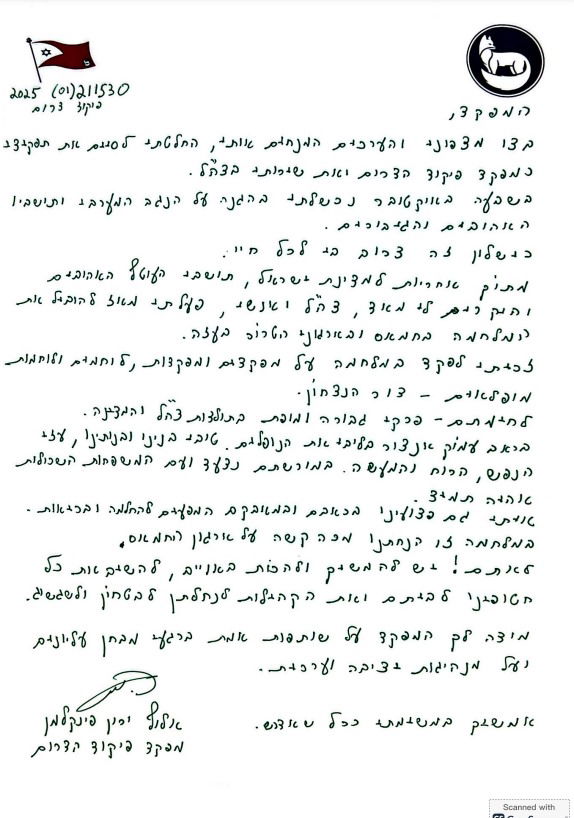 211530(01) 2025
פיקוד דרום
המפקד,
בצו מצפוני והערכים המנחים אותי, החלטתי לסיים את תפקידי
כמפקד פיקוד הדרום ואת שירותי בצה"ל.
בשבעה באוקטובר נכשלתי בהגנה על הנגב המערבי ותושביו
האהובים והגיבורים.
כישלון זה צרוב בי לכל חיי.
מתוך אחריות למדינת ישראל, תושבי העוטף האהובים
והיקרים לי מאוד, צה"ל ואנשיו, פעלתי מאז להוביל את
המלחמה בחמאס ובארגוני הטרור בעזה.
זכיתי לפקד במלחמה על מפקדים ומפקדות, לוחמים ולוחמות
מופלאים - דור הנצחון.
לחימתם - פרקי גבורה ומופת בתולדות צה"ל והמדינה.
בכאב עמוק אנצור בליבי את הנופלים. טובי בנינו ובנותינו, עזי
הנפש, הרוח והמעשה. במורשתם נצעד ועם המשפחות השכולות
אהיה תמיד.
איתי גם פצועינו בכאבם ובמאבקם המפעים להחלמה ובריאות.
במלחמה זו הנחתנו מכה קשה על ארגון החמאס.
לא תם! יש להמשיך ולהכות באויב, להשיב את כל
חטופינו לביתם ואת הקהילות לנחלתן לבטחון ולשגשוג.
מודה לך המפקד על שותפות אמת ברגעי מבחן עליונים
ועל מנהיגות יציבה וערכית.
אמשיך במשימתי ככל שאדרש.
אלוף ירון פינקלמן
מפקד פיקוד הדרום
Scanned with